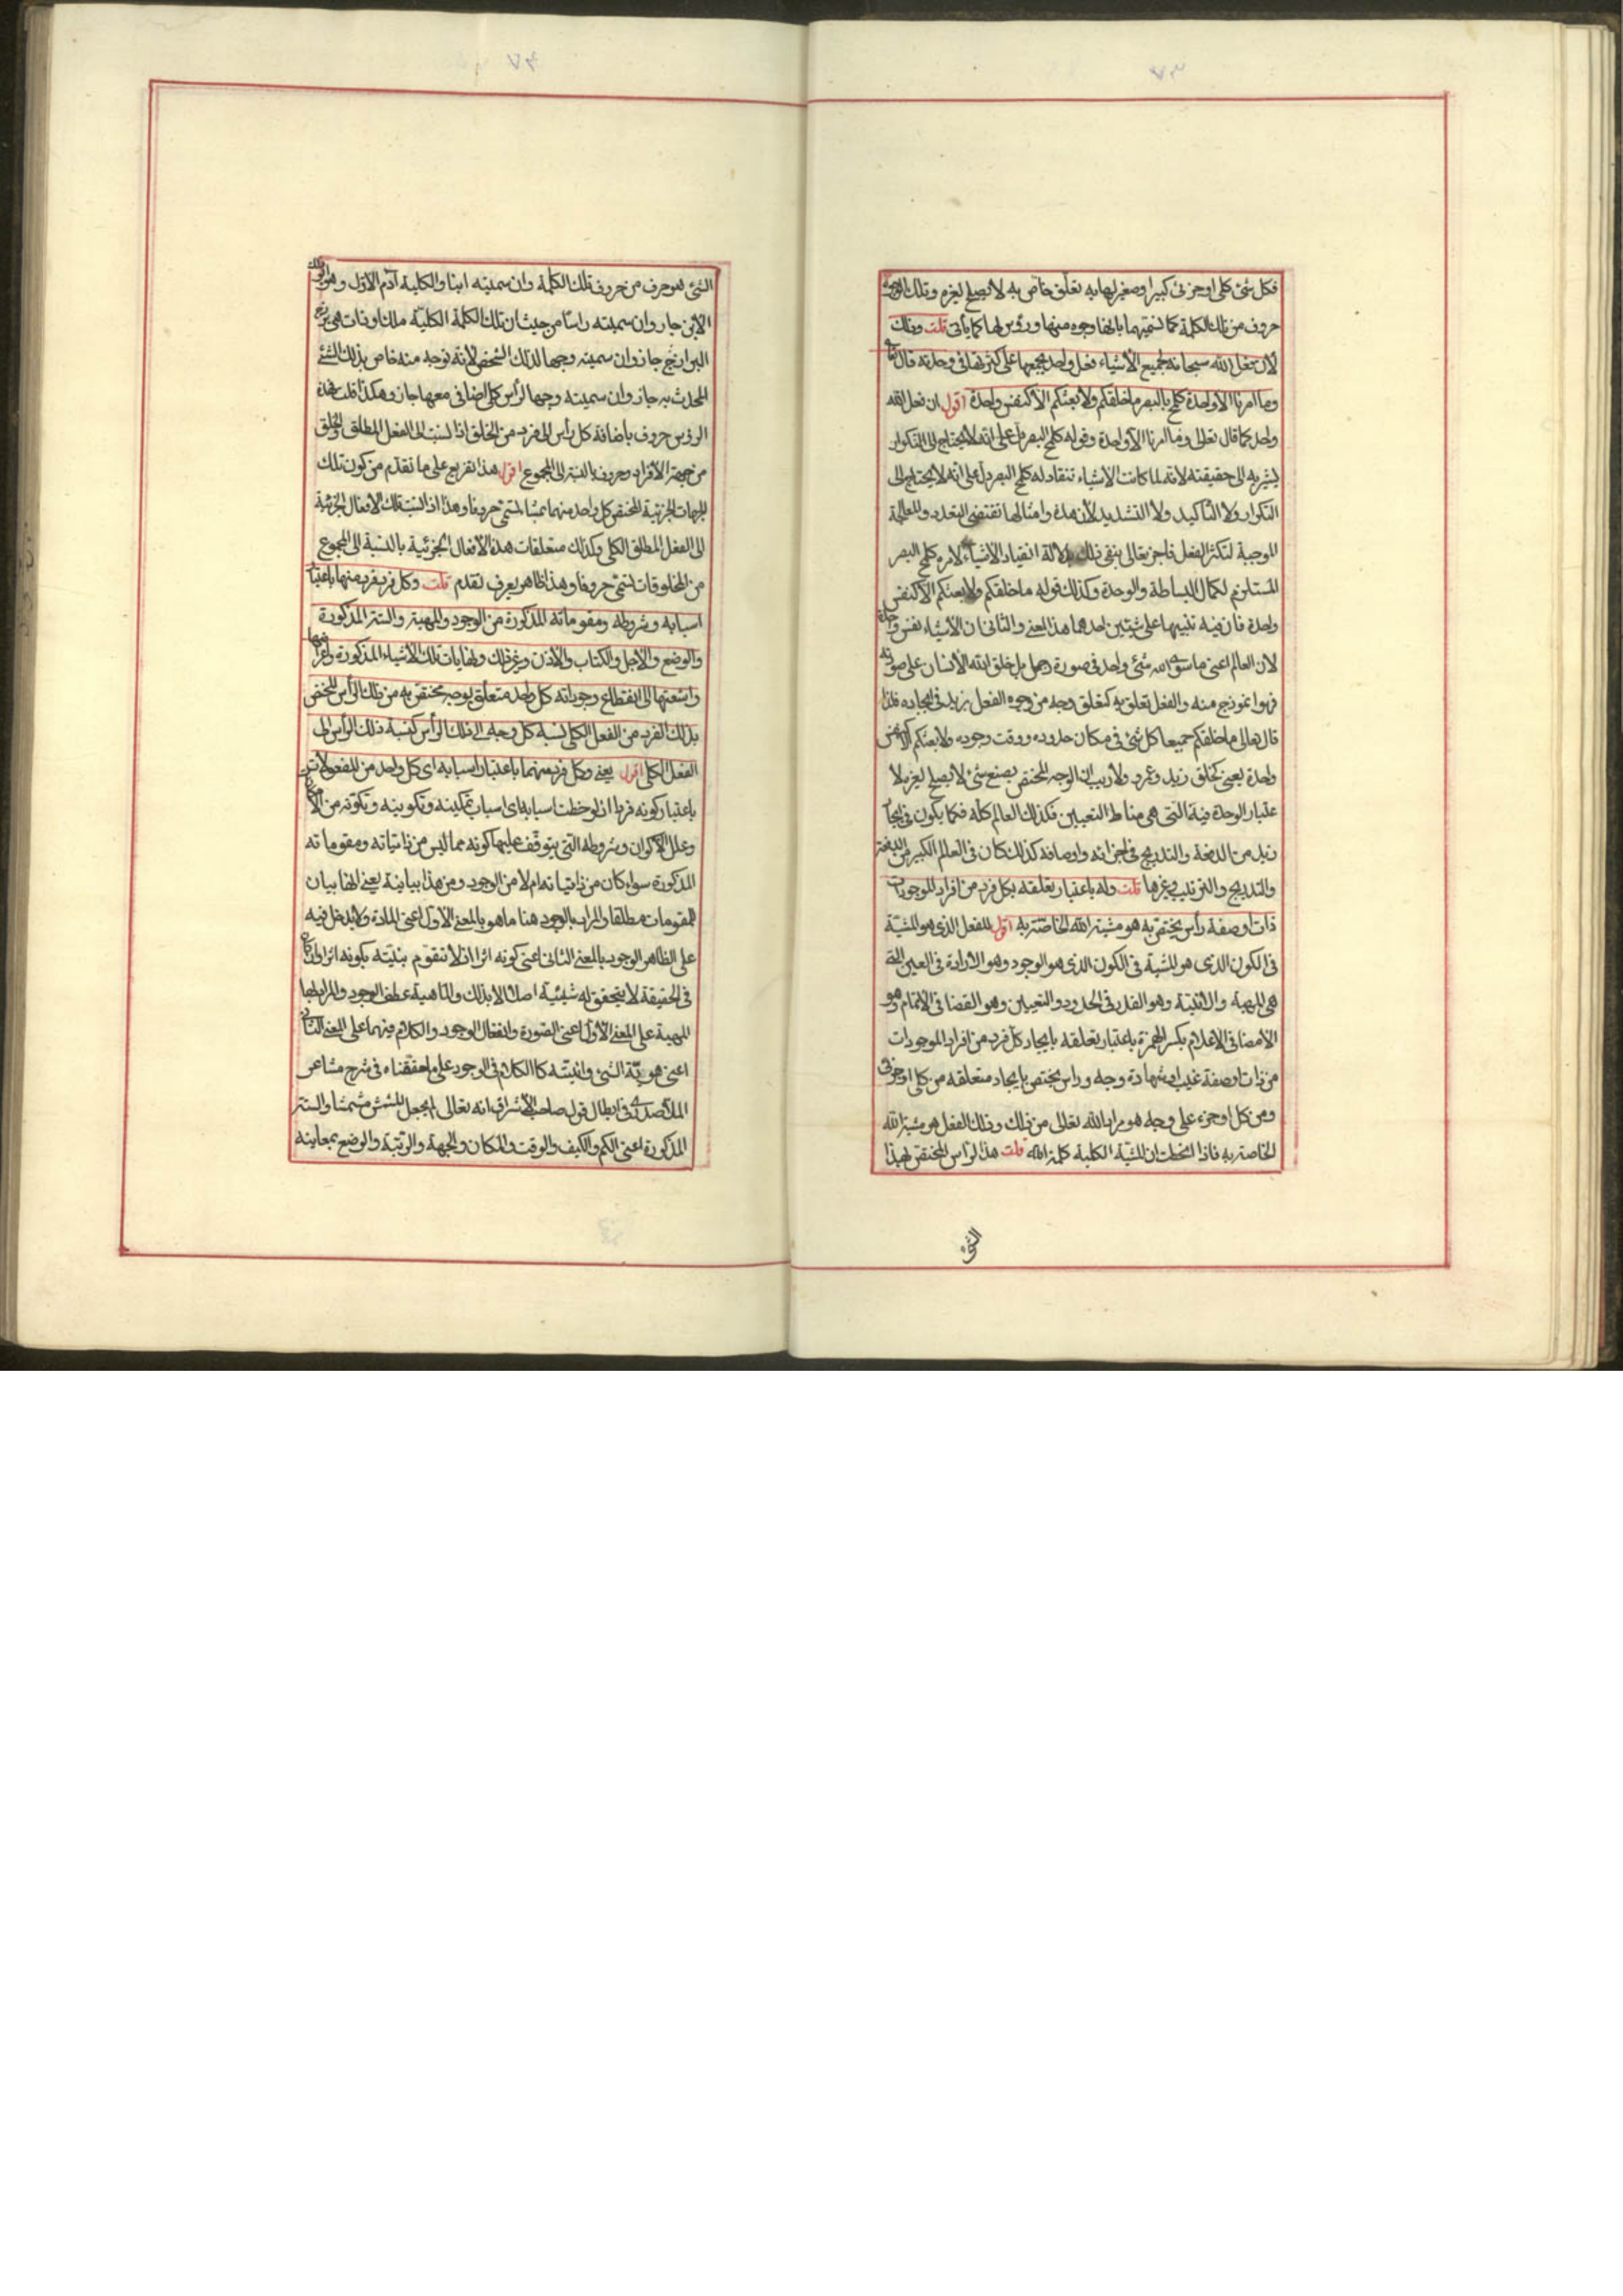 ٧٣
فكل شئ كلى او جزئى كبير او صغير لها به تعلّق خاص به لا يصلح لغيره وتلك الوجوه
حروف من تلك الكلمة كما نسميها بانها وجوه منها ورؤس لها كما يأتى قلت وذلك
لان فعل الله سبحانه لجميع الأشياء فعل واحد يجمعها على كثرتها فى وحدته قال تعالى
وما امرنا الا واحدة كلمح بالبصر ما خلقكم ولا بعثكم الا كنفس واحدة اقول ان فعل الله
واحد كما قال تعالى وما امرنا الا واحدة وقوله كلمح البصر دل على انه لا يحتاج الى التكرار
يشير به الى حقيقته لانه لما كانت الاشياء تنقاد له كلمح البصر دل على انه لا يحتاج الى
التكرار ولا التأكيد ولا التشديد لأن هذه وامثالها تقتضى التعدد والمعالجة
الموجبة لتكثر الفعل فاخبر تعالى بنفى ذلك بدلالة انقياد الاشياء لامره كلمح البصر
المستلزم لكمال البساطة والوحدة وكذلك قوله ما خلقكم ولا بعثكم الا كنفس
واحدة فان فيه تنبيها على شيئين احدهما هذا المعنى والثانى ان الأشياء نفس واحدة
لان العالم اعنى ما سوى الله شئ واحد فى صورة رجل بل خلق الله الأنسان على صورته
فهو انموذج منه والفعل تعلق به كتعلق وجه من وجوه الفعل بزيد فى ايجاده فلذا
قال تعالى ما خلقكم جميعا كل شئ فى مكان حدوده ووقت وجوده ولا بعثكم الا كنفس
واحدة يعنى كخلق زيد وعمرو ولا ريب ان الوجه المختص بصنع شئ لا يصلح لغيره لا
عتبار الوحدة فيه التى هى مناط التعيين فكذلك العالم كله فكما يكون فى ايجاد
زيد من الدفعة والتدريج فى اجزائه واوصافه كذلك كان فى العالم الكبير من الدفعة
والتدريج والترتيب وغيرها قلت وله باعتبار تعلقه بكل فرد من افراد الموجودات
ذات او صفة رأس يختص به هو مشية الله الخاصة به اقول للفعل الذى هو المشية
فى الكون الذى هو المشية فى الكون الذى هو الوجود وهو الارادة فى العين التى
هى المهية والانية وهو القدر فى الحدود والتعيين وهو القضا فى الاتمام وهو
الامضا فى الاعلام بكسر الهمزة باعتبار تعلقه بايجاد كل فرد من افراد الموجودات
من ذات او صفة غيب او شهادة وجه وراس يختص بايجاد متعلقه من كلى او جزئى
ومن كل او جزء على وجه هو مراد الله تعالى من ذلك وذلك الفعل هو مشية الله
الخاصة به فاذا لاحظت ان المشية الكلية كلمة الله قلت هذا الرأس المختص بهذا
الشئ
٧٤
الشئ هو حرف من حروف تلك الكلمة وان سميته ابنا والكلية آدم الاول وهو ابو ذلك
الابن جاز وان سميته راسا من حيث ان تلك الكلمة الكلية ملك او ذات هى
البرازخ جاز وان سميته وجها لذلك الشخص لأنه توجه منه خاص بذلك الشئ
المحدث به جاز وان سميته وجها لرأس كلى اضافى معها جاز وهكذا قلت فهذه
الرؤس حروف باضافة كل رأس الى فرد من الخلق اذا نسبت الى الفعل المطلق والخلق
من جهة الأفراد حروف بالنسبة الى المجموع اقول هذا تفريع على ما تقدم من كون تلك
الجهات الجزئية المختص كل واحد منها بشئ تسمى حروفا وهذا اذا نسبت تلك الافعال الجزئية
الى الفعل المطلق الكلى وكذلك متعلقات هذه الأفعال الجزئية بالنسبة الى المجموع
من المخلوقات تسمى حروفا وهذا ظاهر يعرف لما تقدم قلت وكل فرد فرد منها باعتبار
اسبابه وشروطه ومقوماته المذكورة من الوجود والمهية والستة المذكورة
والوضع والاجل والكتاب والأذن وغير ذلك ولنهايات تلك الأشياء المذكورة واعراضها
واشعتها الى انقطاع وجوداته كل واحد متعلق بوجه مختص به من ذلك الرأس المختص
بذلك الفرد من الفعل الكلى نسبة كل وجه الى ذلك الرأس كنسبة ذلك الرأس الى
الفعل الكلى اقول يعنى وكل فرد منها باعتبار اسبابه اى كل واحد من المفعولات
باعتبار كونه فردا اذا لوحظت اسبابه اى اسباب تمكينه وتكوينه وتكونه من
وعلل الأكوان وشروطه التى يتوقف عليها كونه مما ليس من ذاتياته ومقوماته
المذكورة سواء كان من ذاتياته ام لا من الوجود ومن هذا بيانية يعنى انها بيان
للمقومات مطلقا والمراد بالوجود هنا ما هو بالمعنى الاول اعنى المادة ولا يدخل فيه
على الظاهر الوجود بالمعنى الثانى اعنى كونه اثرا اذ لا تتقوم بنيته بكونه اثرا وان كان
فى الحقيقة لا يتحقق له شيئية اصلا الا بذلك والماهية عطف الوجود والمراد بها
المهية على المعنى الأول اعنى الصورة وانفعال الوجود والكلام فيهما على المعنى الثانى
اعنى هوية الشئ وانيته كالكلام فى الوجود على ما حققناه فى شرح مشاعر
الملا صدرى فى ابطال قول صاحب الأشراق انه تعالى لم يجعل المشمش مشمشا والستة
المذكورة اعنى الكم والكيف والوقت والمكان والجهة والرتبة والوضع بمعانيه